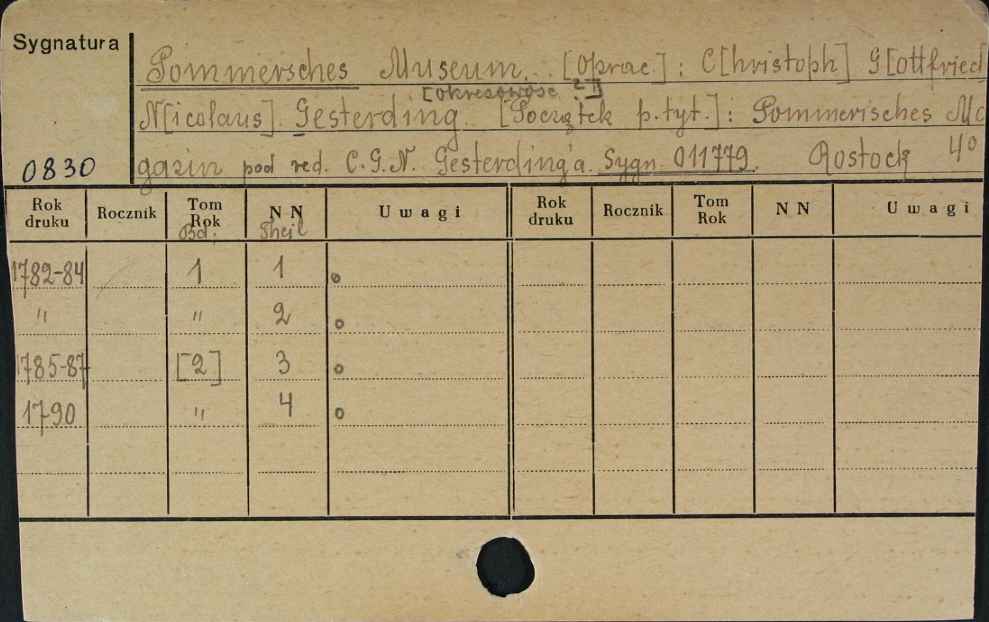 Sygnatura
Pommersches Museum... [Oprac.]: C[hristoph] G[ottfried]
[okresowość 2 T]
N[icolaus]. Gesterding. [Początek p.tyt.]: Pommerisches Ma
0830 gazin pod red. C.G.N. Gesterding'a. Sygn. 011779. Rostock 4°
Rok druku Rocznik Tom Rok N N Uwagi Rok druku Rocznik Tom Rok N N Uwagi
Bd. Theil
1782-84 1 1 o
" " 2 o
1785-87 [2] 3 o
1790 " 4 o